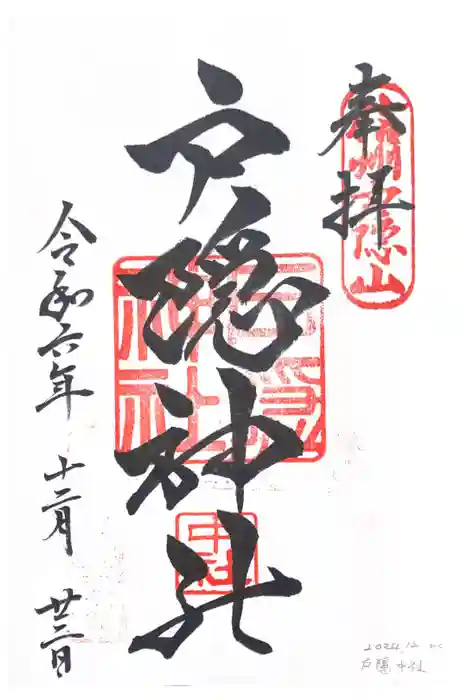 奉拝
信州戸隠山
戸隠神社
戸隠神社
中社
令和六年 十二月 廿二日
2024.12
戸隠中社